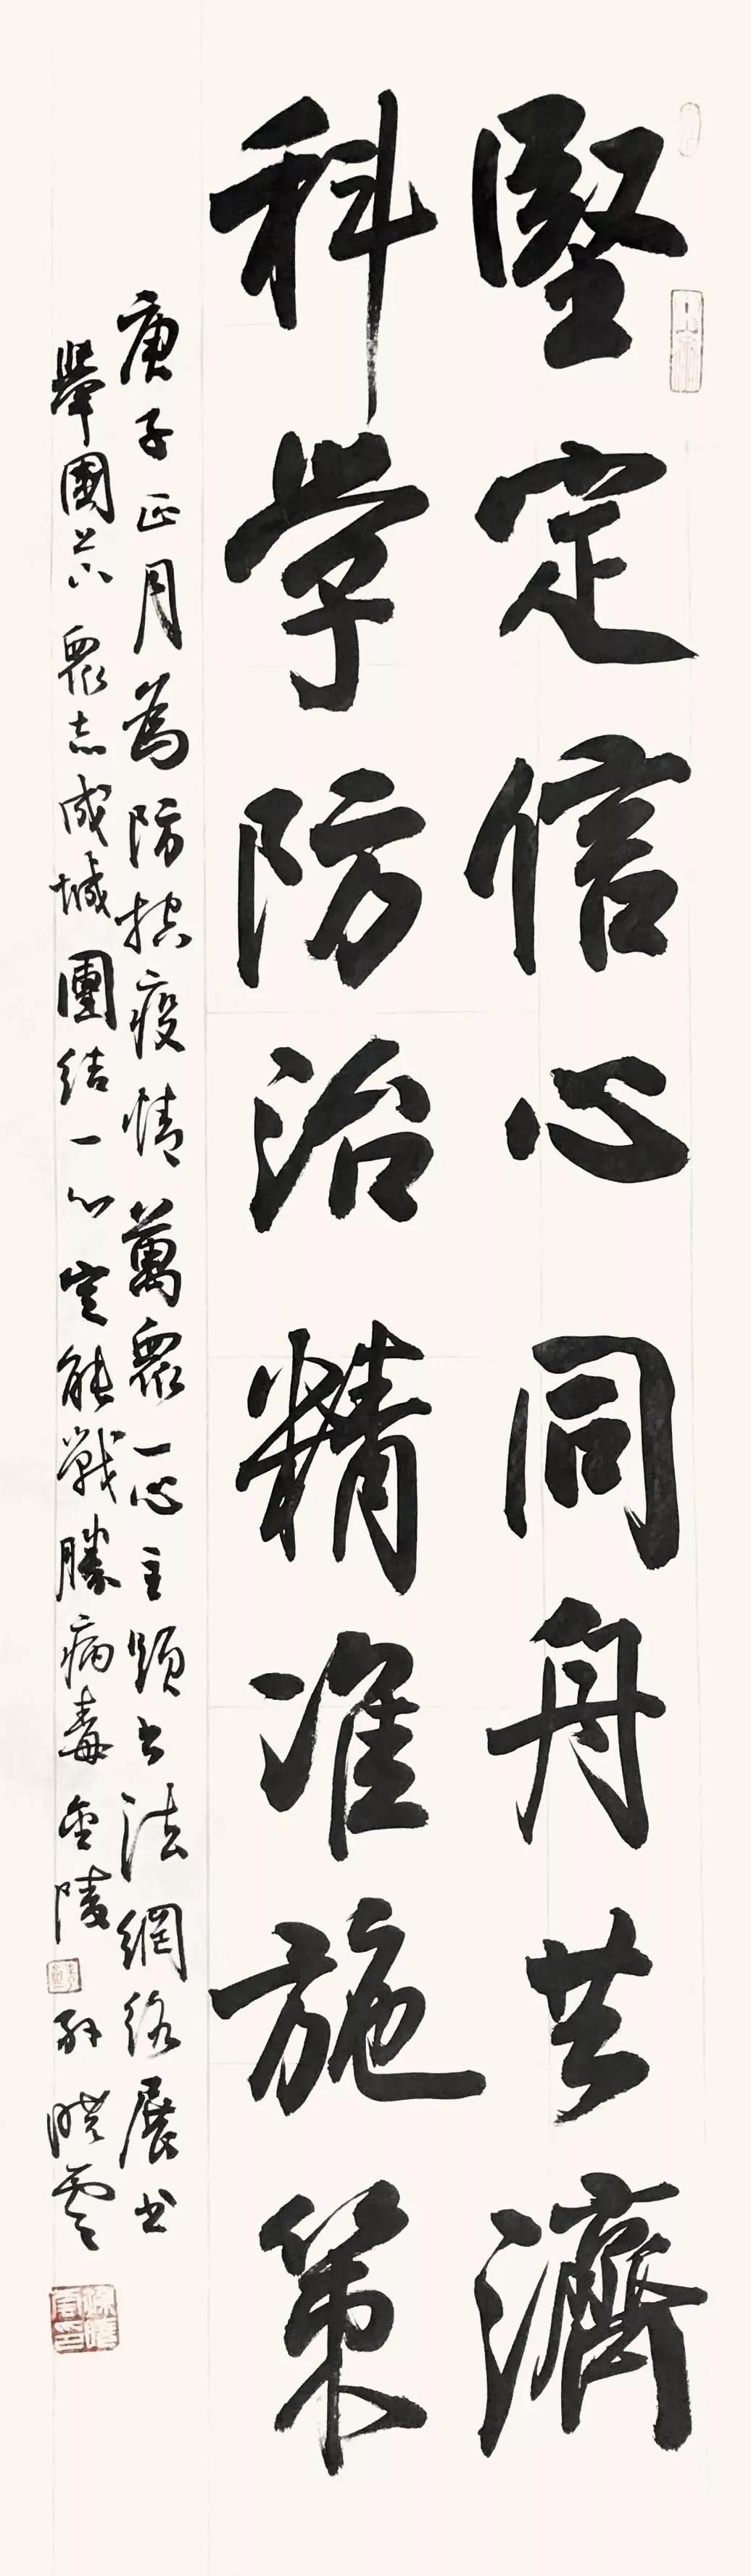 堅定信心同舟共濟
科学防治精准施策
庚子正月為防控疫情萬眾一心主題书法網絡展书
舉國上下眾志成城團結一心定能戰勝病毒金陵孫曉雲